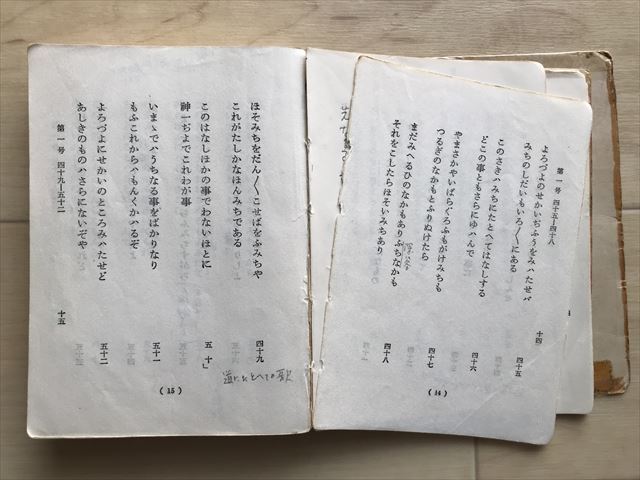 第一号 四十五―四十八
十四
よろづよのせかいぢふうをみハたせバ
みちのしだいもいろ／＼にある
四十五
このさきハみちにたとへてはなしする
どこの事ともさらにゆハんで
四十六
やまさかやいばらぐろふもがけみちも
つるぎのなかもとふりぬけたら
四十七
まだみへるひのなかもありふちなかも
それをこしたらほそいみちあり
四十八
(14)
ほそみちをだん／＼こせばをふみちや
これがたしかなほんみちである
四十九
このはなしほかの事でわないほとに
神一ぢよでこれわが事
五十」
いまゝでハうちなる事をばかりなり
もふこれからハもんくかハるぞ
五十一
よろづよにせかいのところみハたせど
あしきのものハさらにないぞや
五十二
第一号 四十九―五十二
十五
道にたとへての歌
(15)